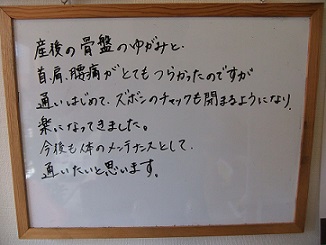 産後の骨盤のゆがみと、
首、肩、腰痛がとてもつらかったのですが
通いはじめて、ズボンのチャックも閉まるようになり、
楽になってきました。
今後も体のメンテナンスとして、
通いたいと思います。